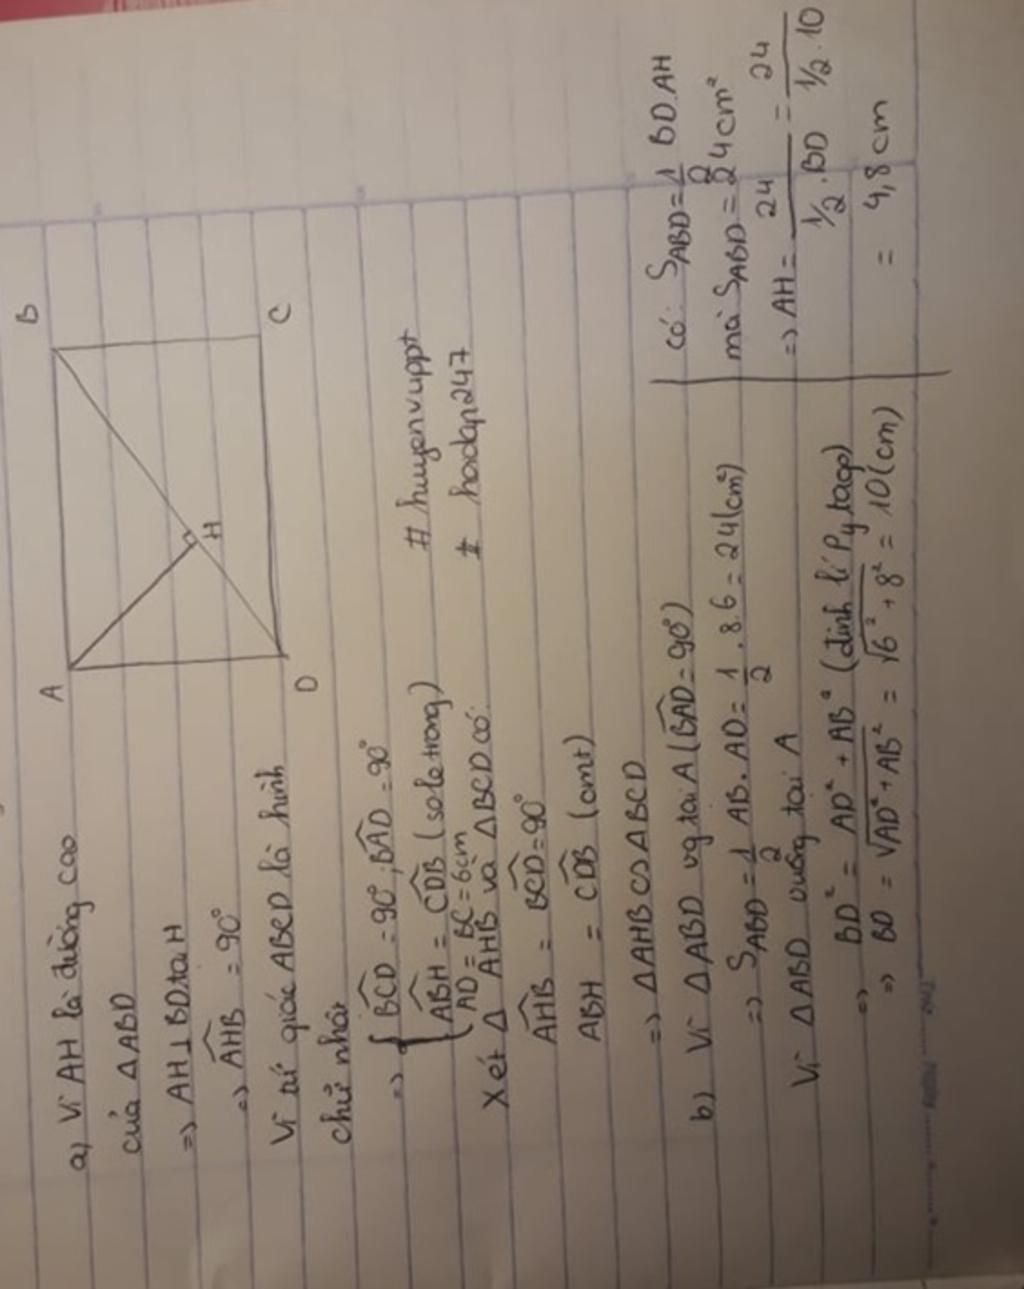 A
B
H
D
C
a) Vì AH là đường cao
của ΔABD
=> AH⊥BD tại H
=> AHB = 90°
Vì tứ giác ABCD là hình
chữ nhật
=> { BCD = 90°, BAD = 90°
ABH = CDB (sole trong)
AD = BC = 6cm
# huyenvuppt
# hoidap247
Xét Δ AHB và ΔBCD có:
AHB = BCD = 90°
ABH = CDB (cmt)
=> ΔAHB ∽ ΔBCD
b) Vì ΔABD vg tại A (BAD = 90°)
=> S_ABD = 1/2 AB. AD = 1/2 . 8.6 = 24 (cm²)
Vì ΔABD vuông tại A
=> BD² = AD² + AB² (định lí Pytago)
=> BD = √AD² + AB² = √6² + 8² = 10 (cm)
có: S_ABD = 1/2 BD.AH
mà S_ABD = 24cm²
=> AH = 24 / 1/2.BD = 24 / 1/2.10
= 4,8cm